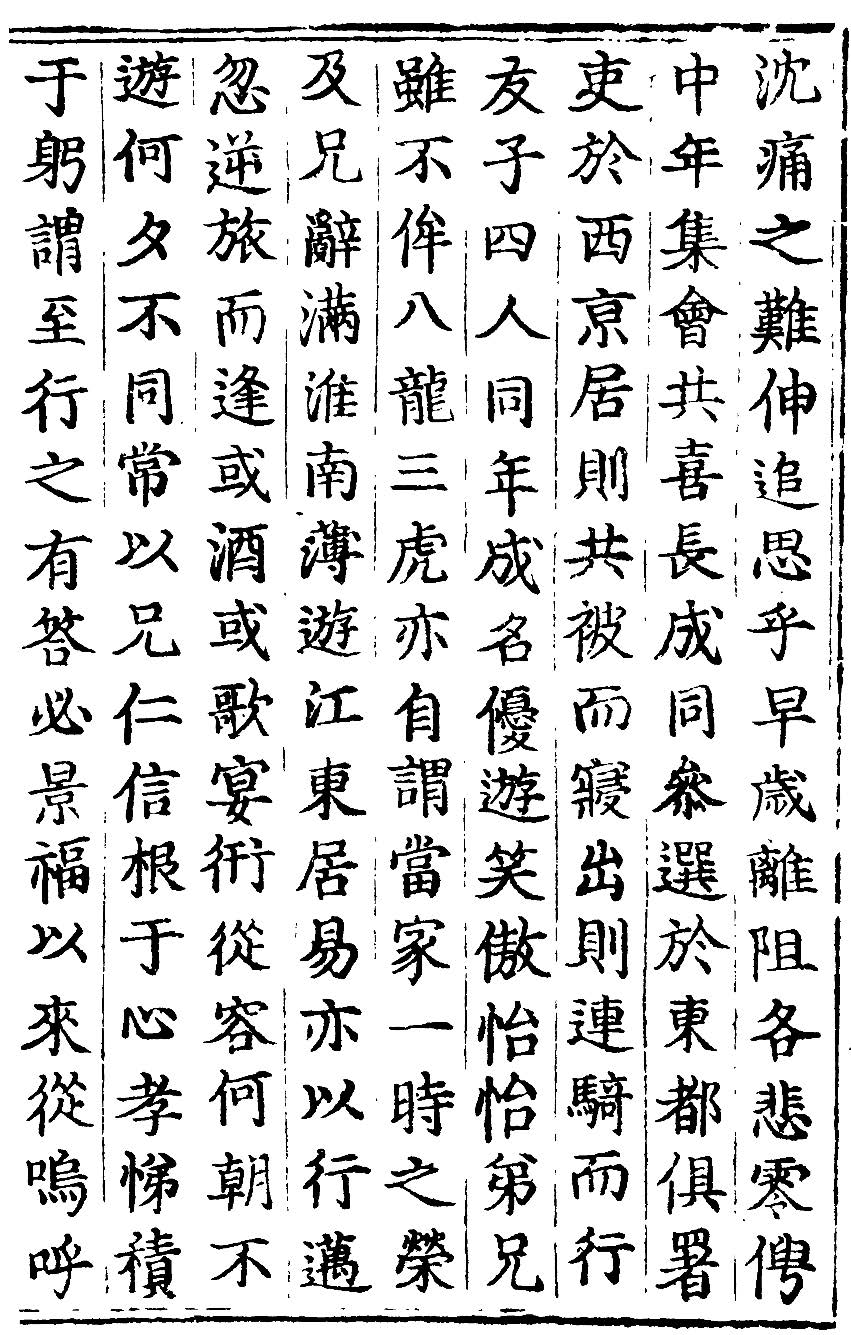 沈痛之難伸追思乎早歳離阻各悲零俜
中年集會共喜長成同叅選於東都俱署
吏於西亰居則共被而寢出則連騎而行
友子四人同年成名優遊笑傲怡怡弟兄
雖不侔八龍三虎亦自謂當家一時之榮
及兄辭滿淮南薄遊江東居易亦以行邁
忽逆旅而逢或酒或歌宴衎從容何朝不
遊何夕不同常以兄仁信根于心孝悌積
于躬謂至行之有答必景福以來從嗚呼